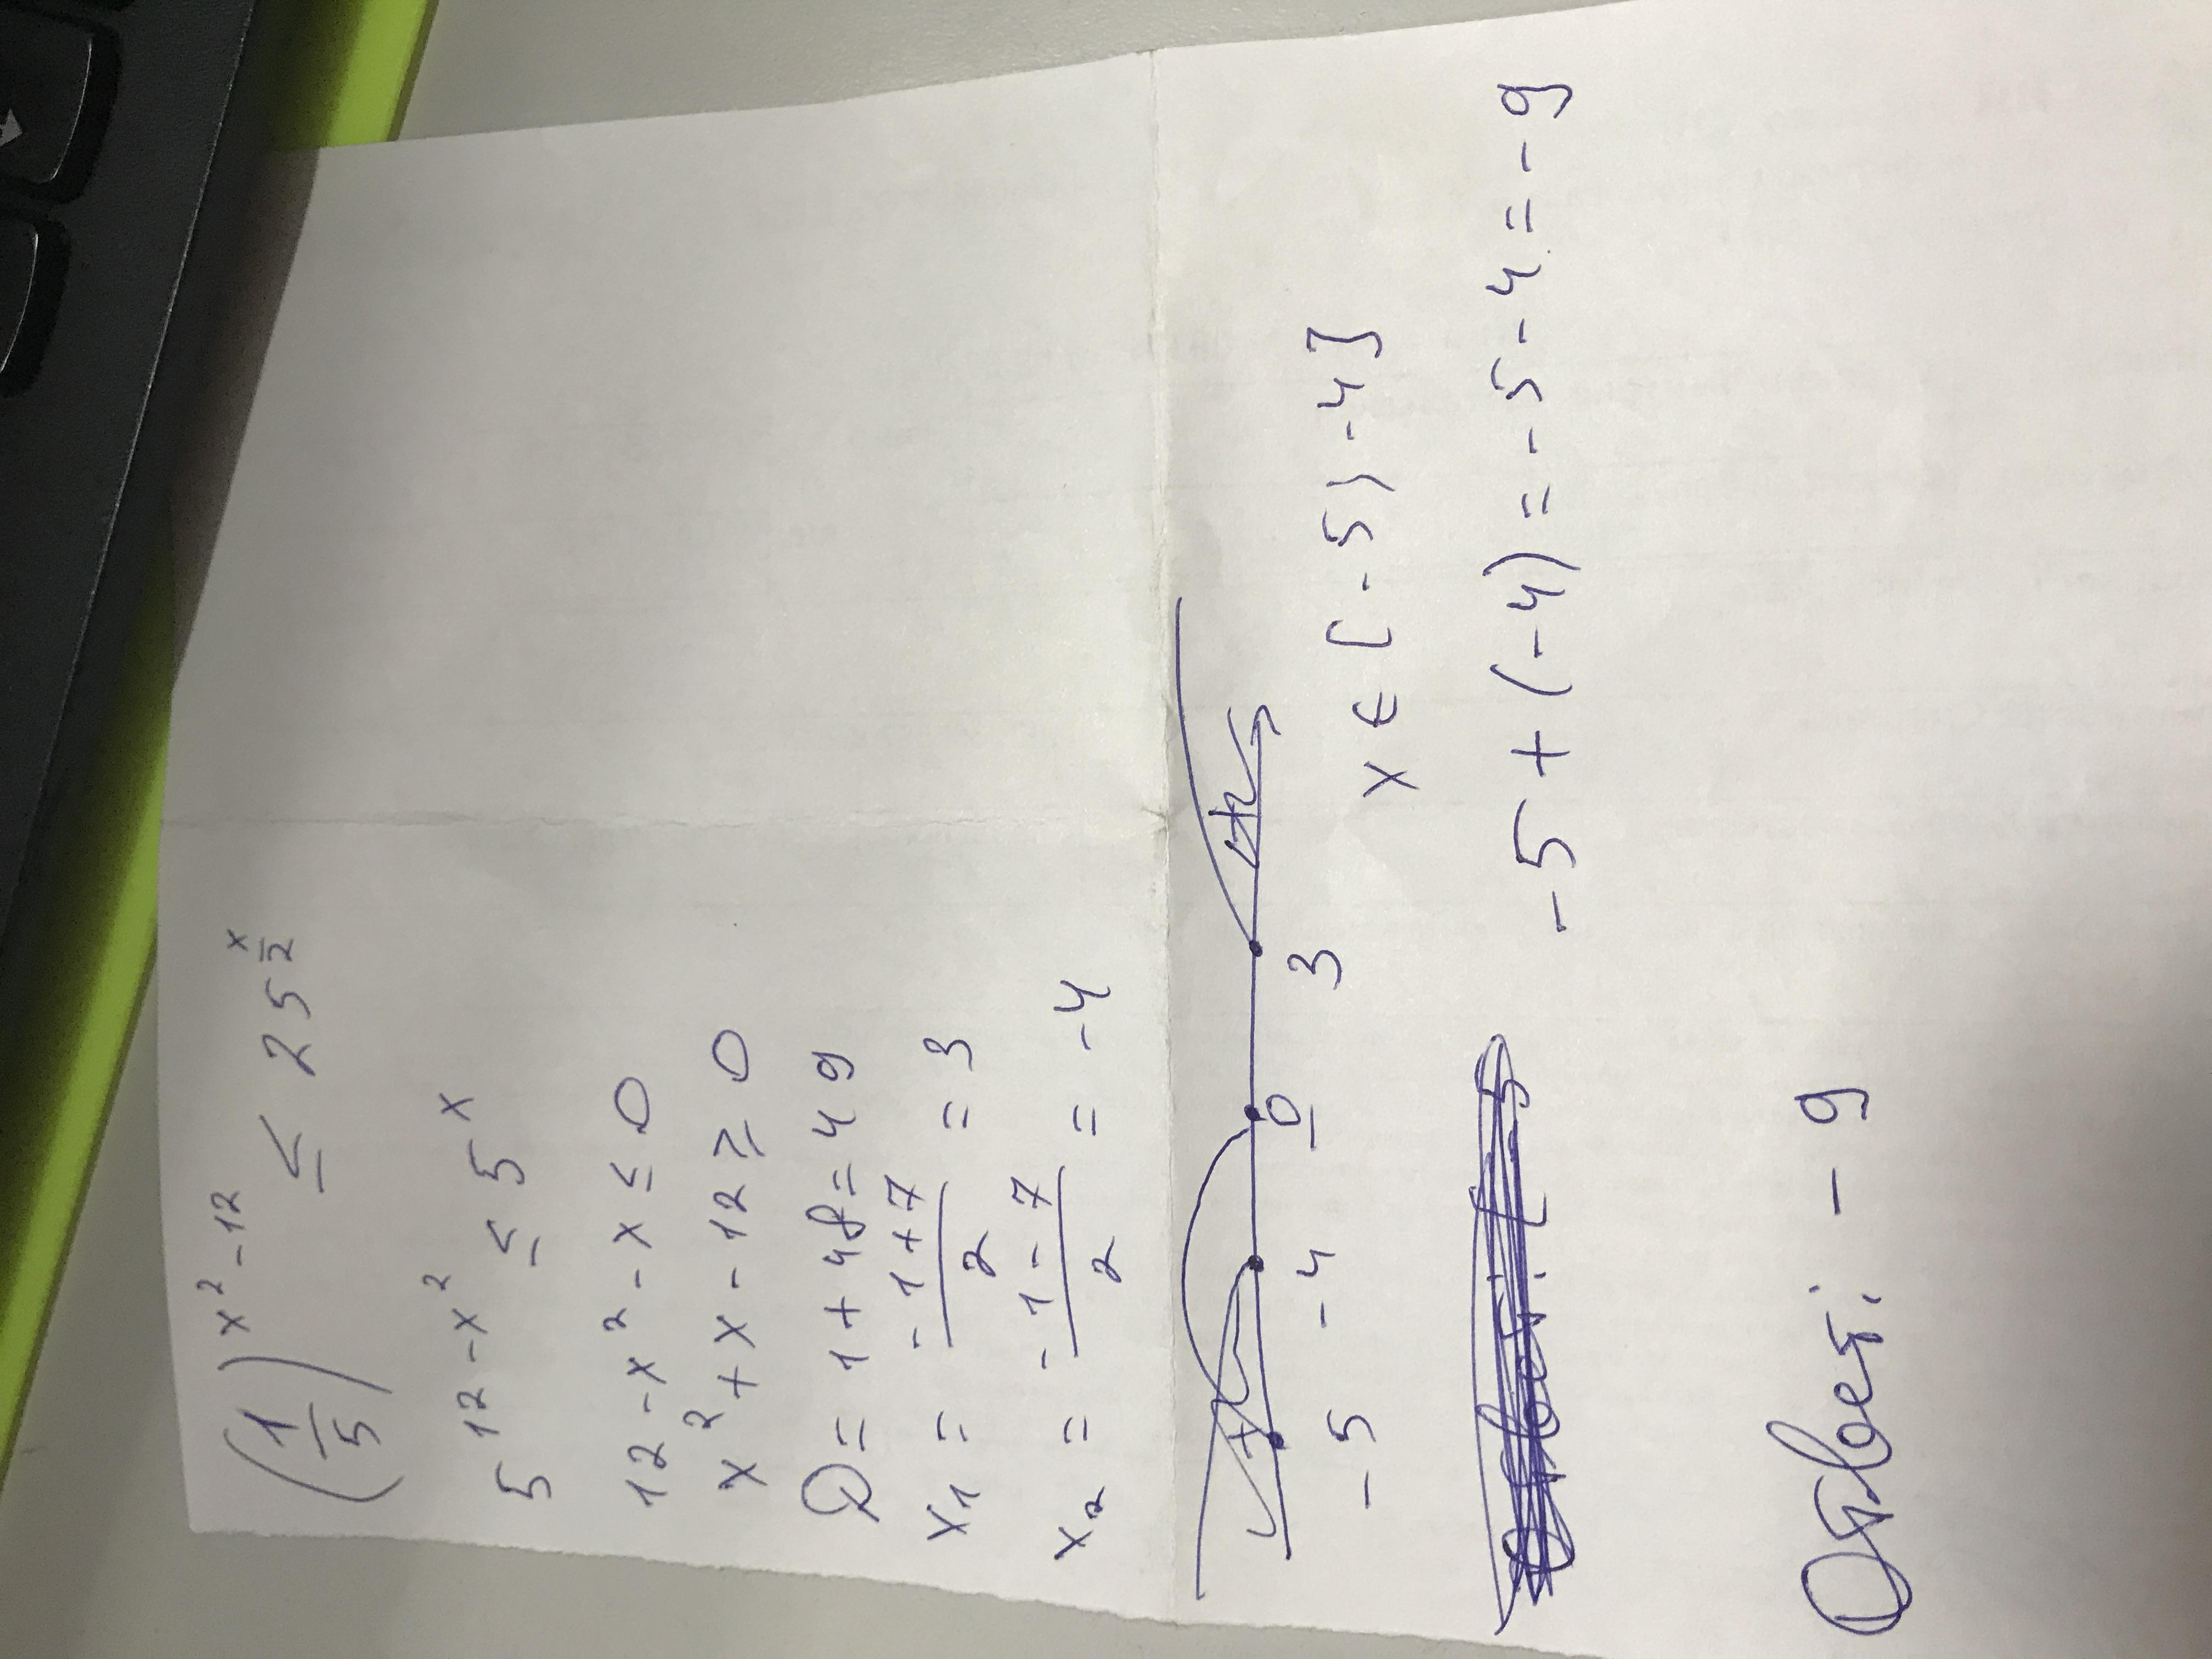 (1/5)^x²-12 ≤ 25^x/2
5^12-x² ≤ 5^x
12-x²-x ≤ 0
x²+x-12 ≥ 0
D = 1+48 = 49
x₁ = (-1+7)/2 = 3
x₂ = (-1-7)/2 = -4
+ +
-5 -4 0 3
x ∈ [-5; -4]
-5+(-4) = -5-4 = -9
Ответ: -9